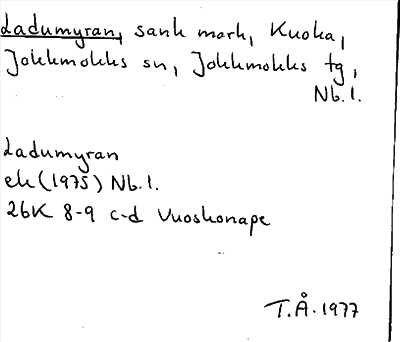 Ladumyran, sank mark, Kuoka,
Jokkmokks sn, Jokkmokks tg,
Nb.l.
Ladumyran
ek (1975) Nb.l.
26K 8-9 c-d Vuoskonape
T.Å. 1977